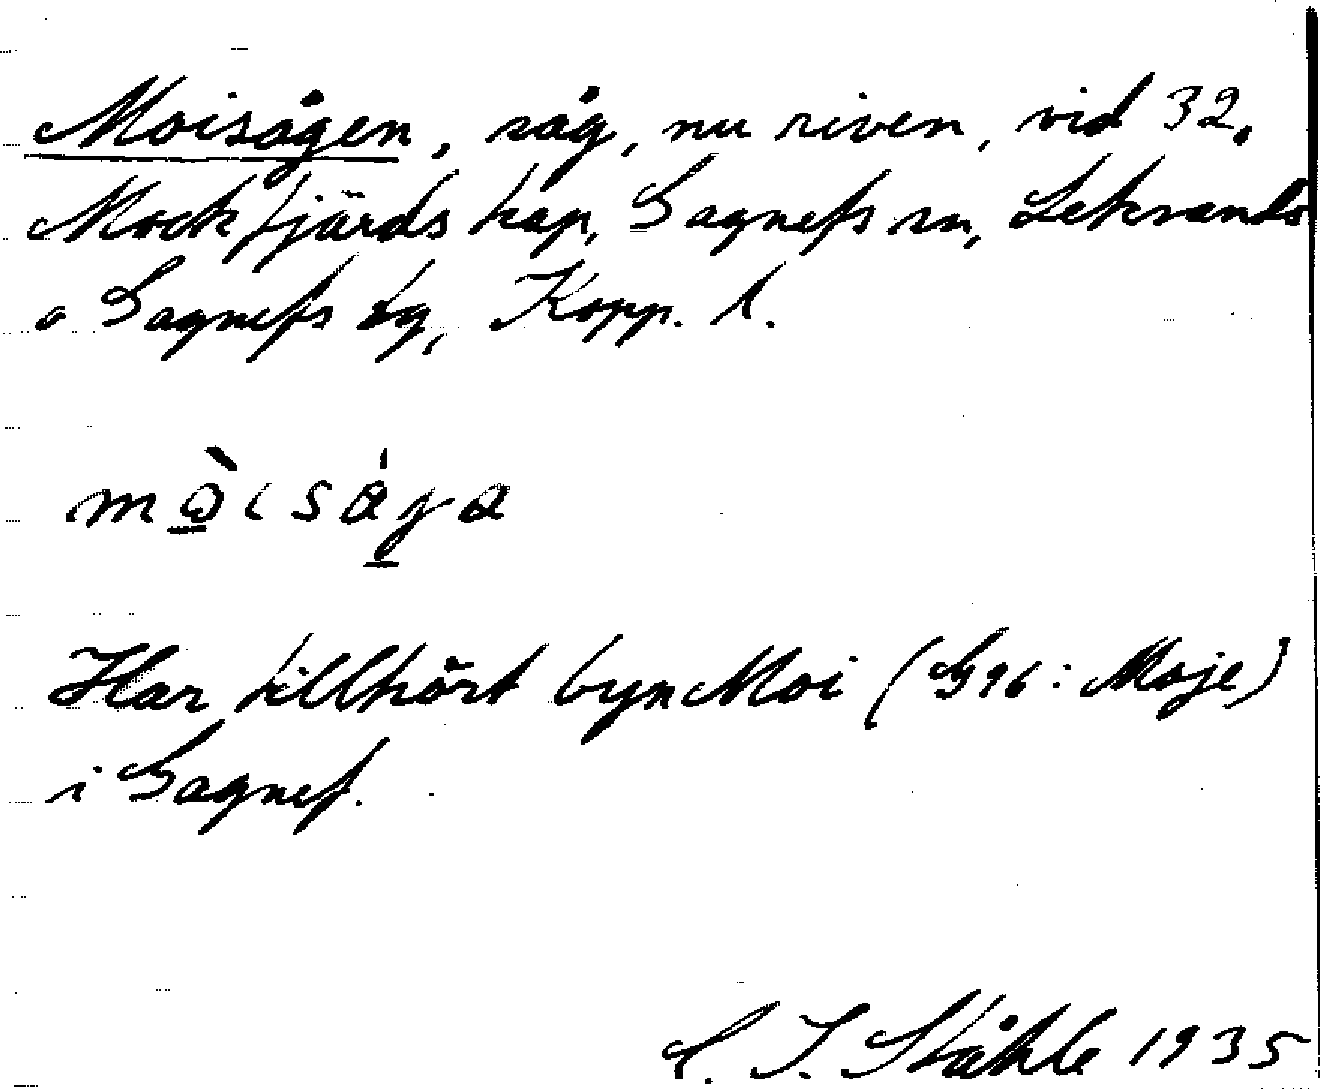 Moisågen, såg, nu riven, vid 32.
Mockfjärds kap, Gagnefs sn, Leksands
o Gagnefs tg, Kopp. l.
Har tillhört byn Moi (G96: Moje)
i Gagnef.
C. I. Ståhle 1935